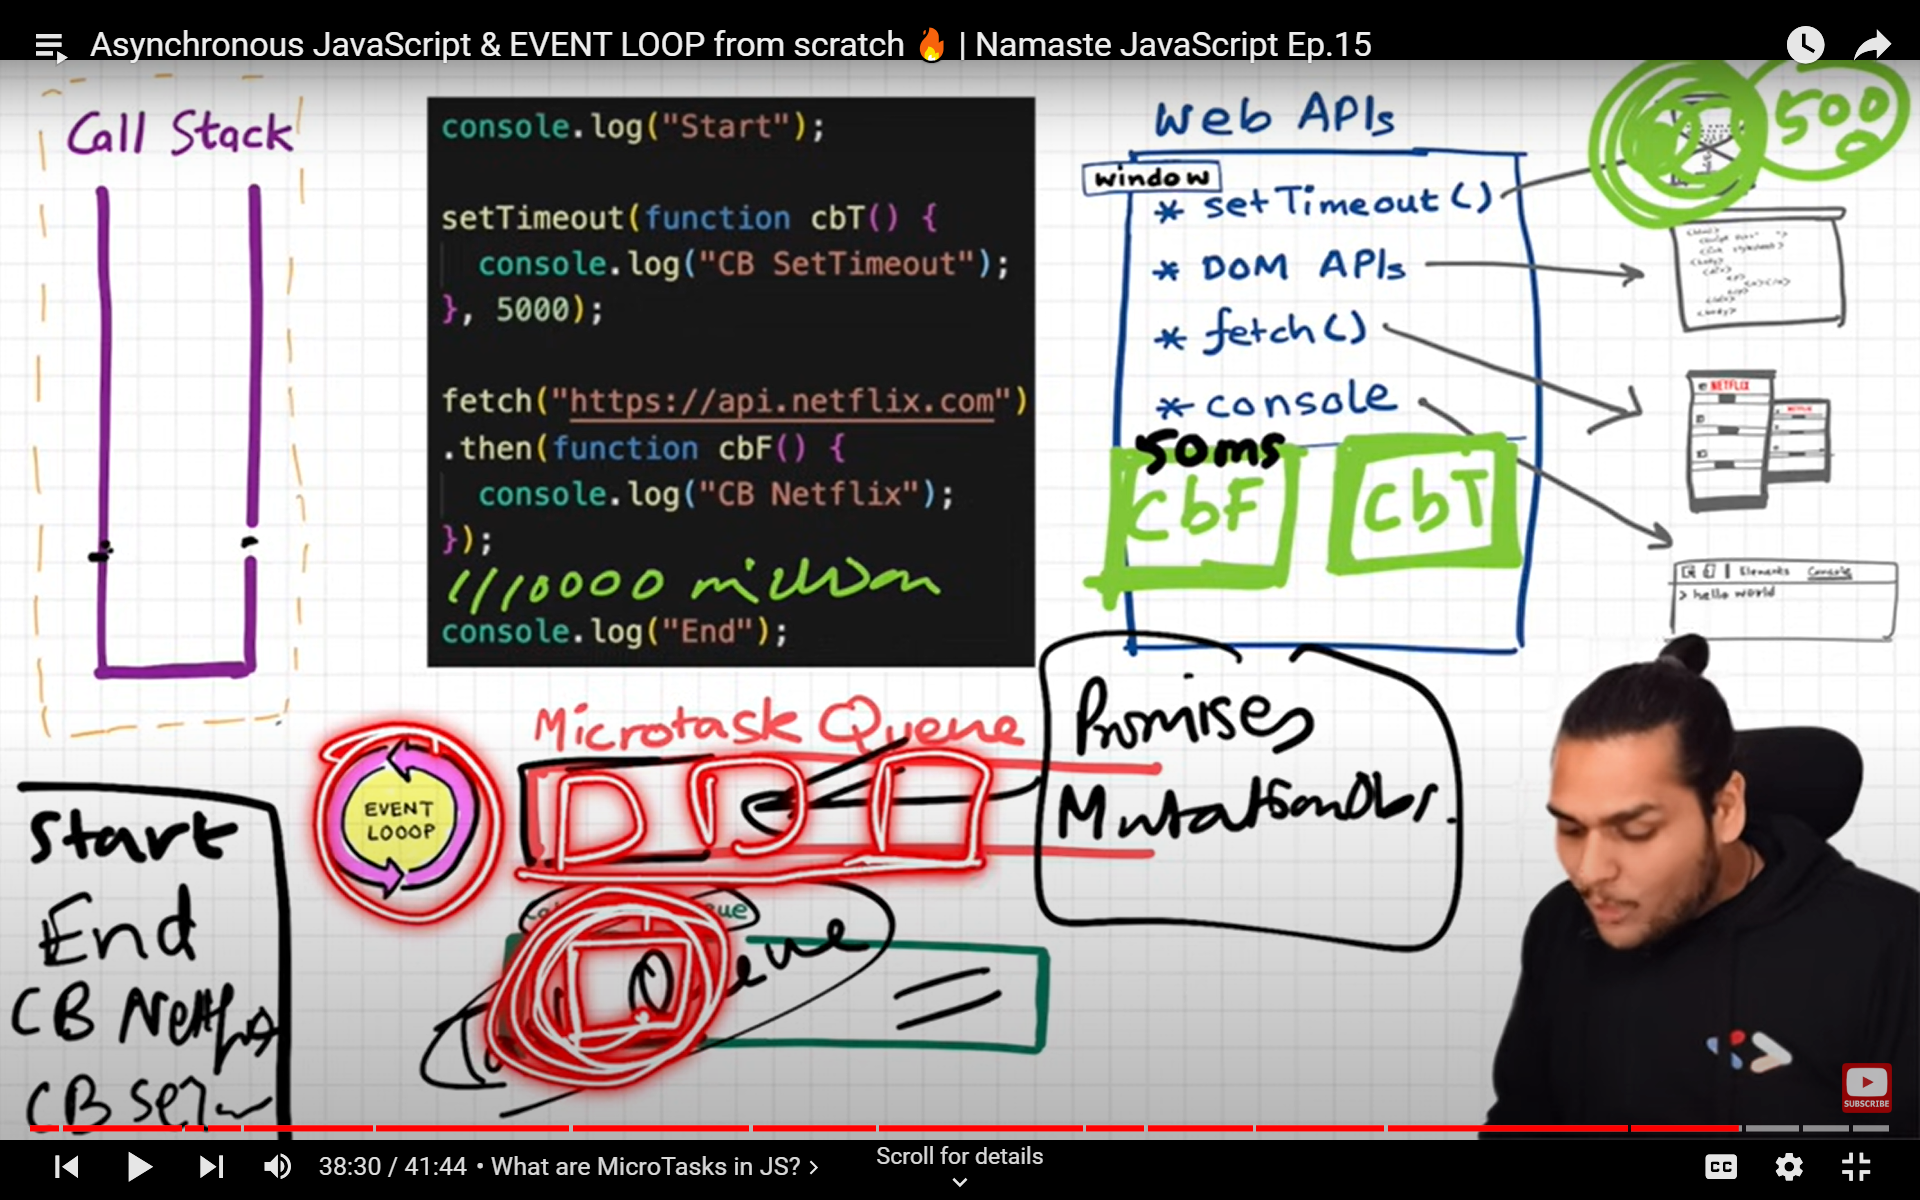 Asynchronous JavaScript & EVENT LOOP from scratch 🔥 | Namaste JavaScript Ep.15
Call Stack
console.log("Start");
setTimeout(function cbT() {
console.log("CB SetTimeout");
}, 5000);
fetch("https://api.netflix.com")
.then(function cbF() {
console.log("CB Netflix");
});
console.log("End");
Web APIs
window
* setTimeout()
* DOM APIs
* fetch()
* console
50ms
CbF
CbT
500
NETFLIX
NETFLIX
Elements Console
> hello world
Microtask Queue
EVENT
LOOOP
Promises
Start
End
CB
CB
SUBSCRIBE
38:30 / 41:44 • What are MicroTasks in JS? >
Scroll for details
CC